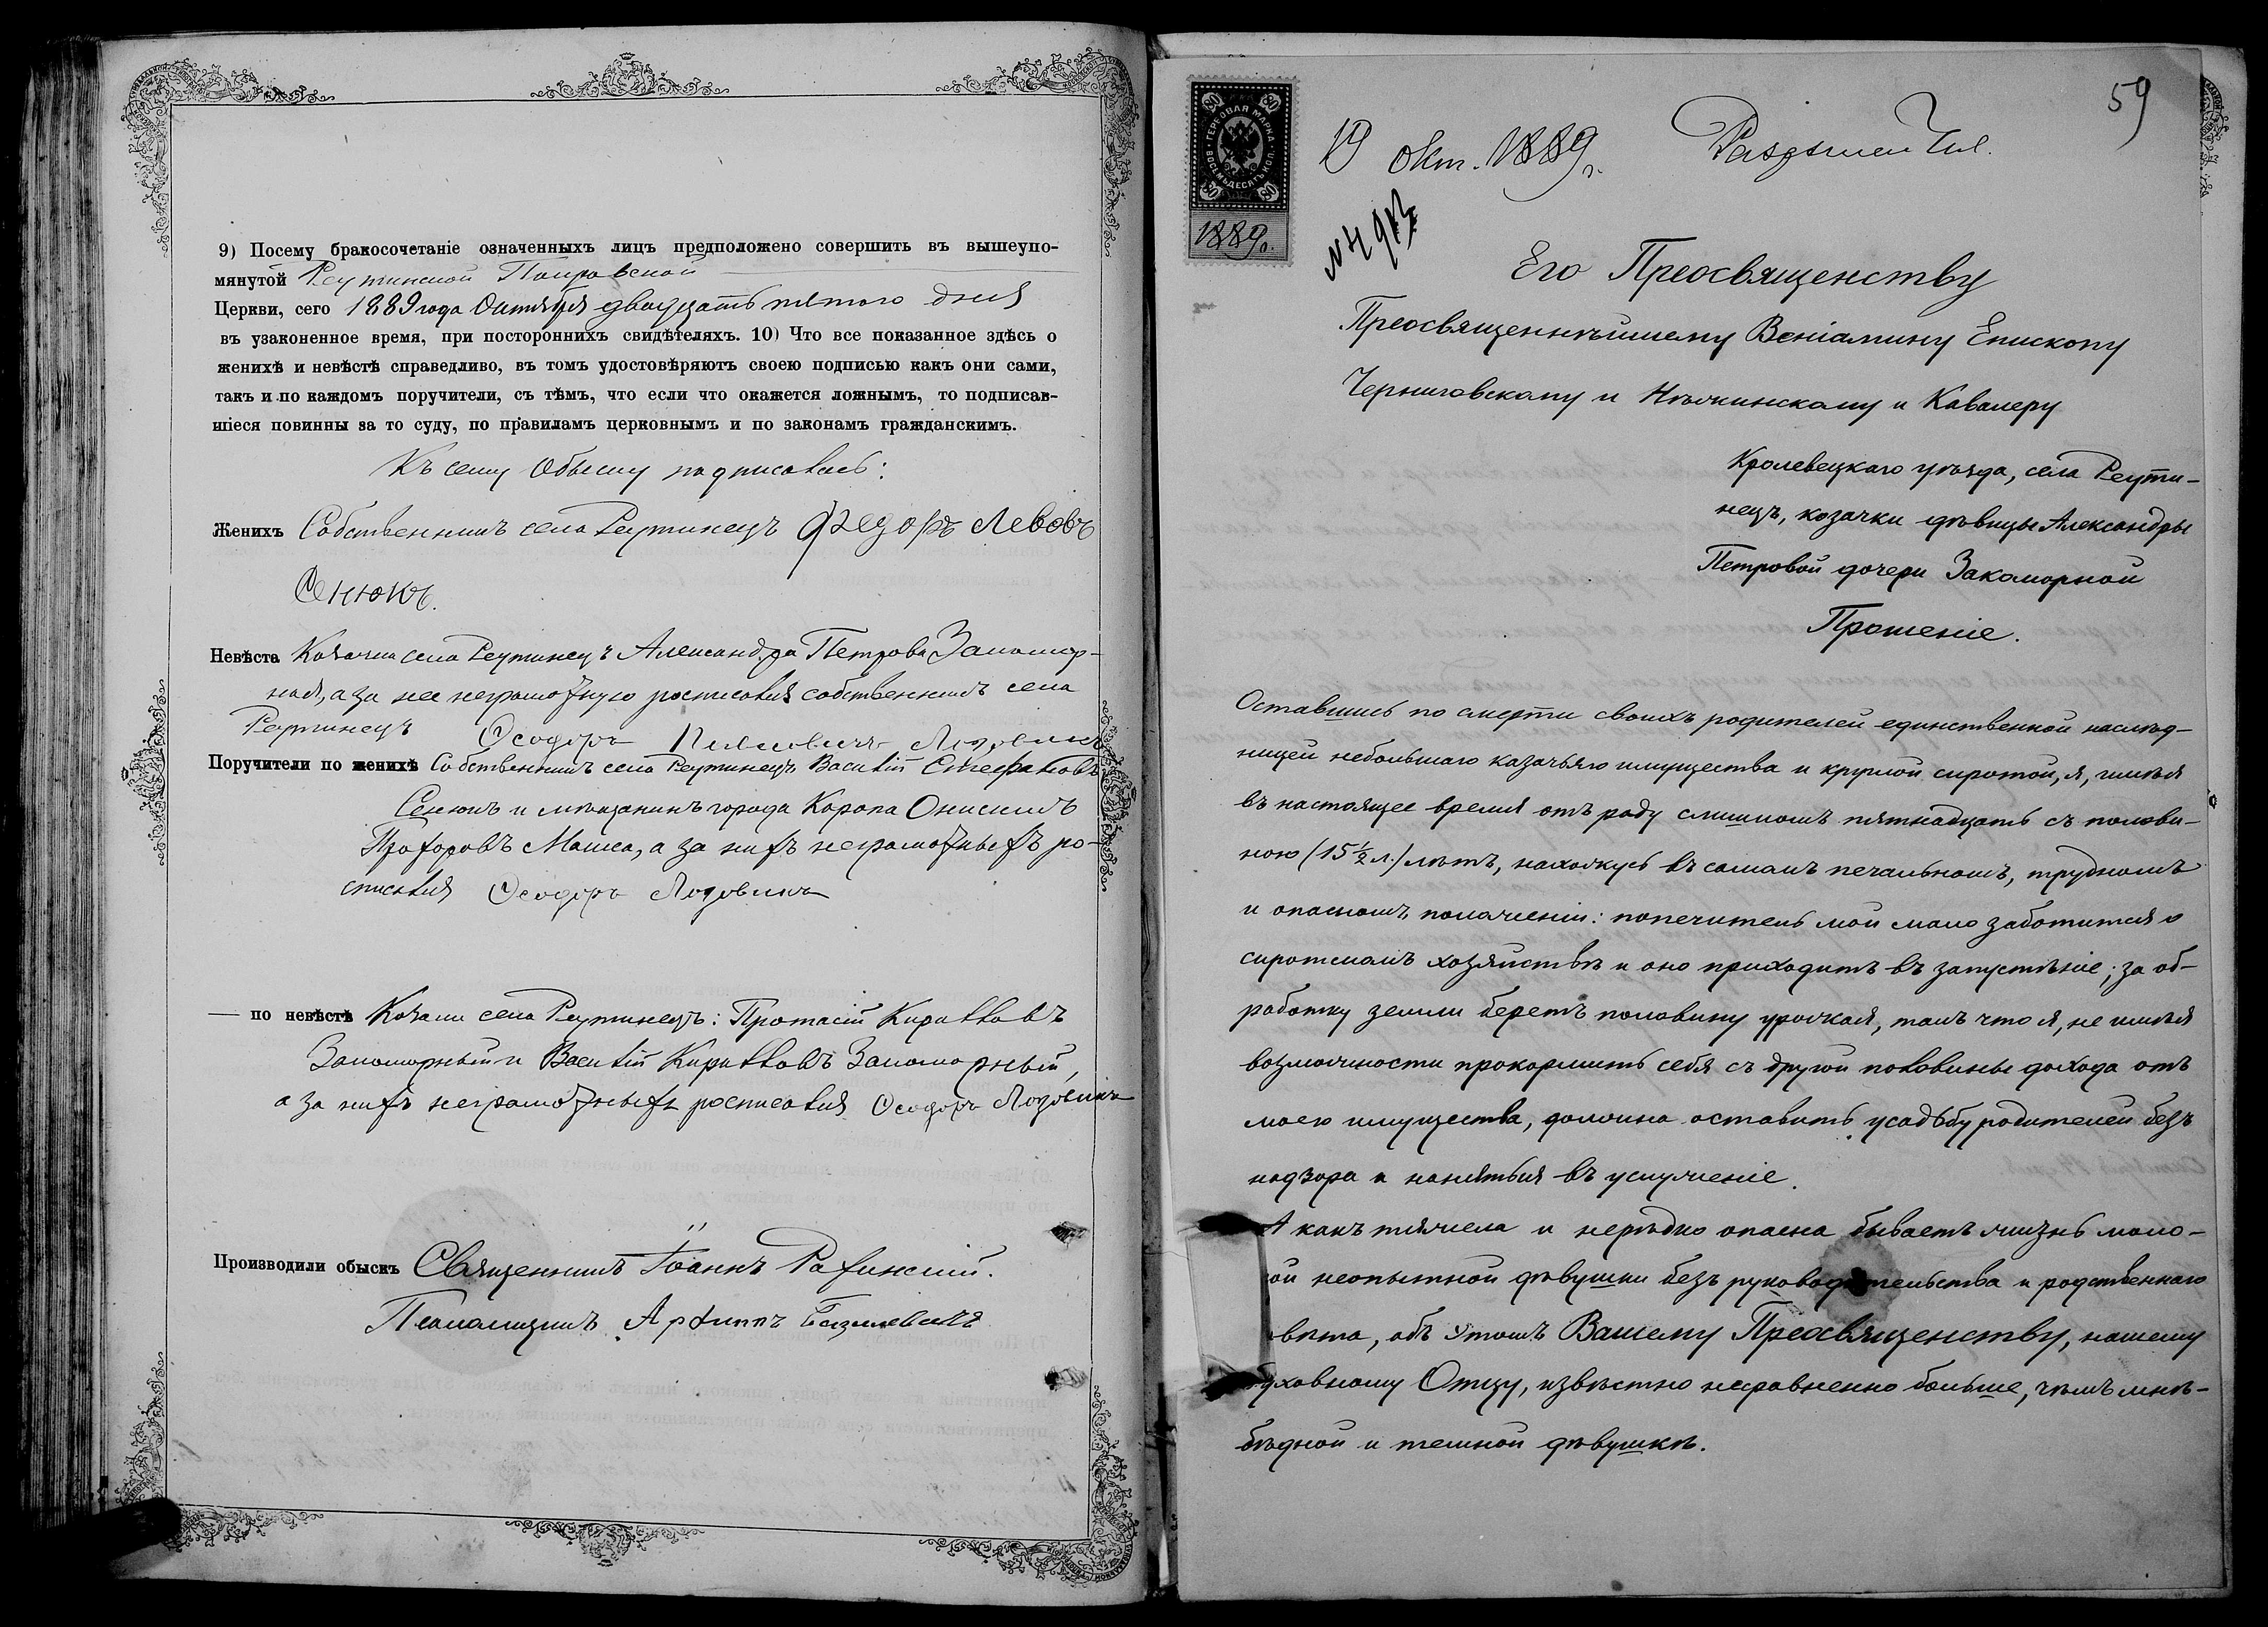 9) Посему бракосочетаніе означенныхъ лицъ предположено совершить въ вышеупо-
мянутой Реутинской Покровской
Церкви, сего 1889 года Октября двадцать пятого дня
въ узаконенное время, при постороннихъ свидѣтеляхъ. 10) Что все показанное здѣсь о
женихѣ и невѣстѣ справедливо, въ томъ удостовѣряютъ своею подписью какъ они сами,
такъ и по каждомъ поручители, съ тѣмъ, что если что окажется ложнымъ, то подписав-
шіеся повинны за то суду, по правиламъ церковнымъ и по законамъ гражданскимъ.
Къ сему Обыску подписались:
Женихъ Собственникъ села Реутинецъ Федоръ Левовъ
Сенюкъ.
Невѣста Козачка села Реутинецъ Александра Петрова Закомор-
ная, а за нее неграмотную росписался собственникъ села
Реутинецъ Феодоръ Лозовикъ
Поручители по женихѣ Собственникъ села Реутинецъ Василій Стефановъ
Сенюкъ и мѣщанинъ города Коропа Онисимъ
Прохоровъ Мошка, а за нихъ неграмотныхъ ро-
списался Феодоръ Лозовикъ
— по невѣстѣ Козаки села Реутинецъ: Протасій Кирилловъ
Закоморный и Василій Кирилловъ Закоморный,
а за нихъ неграмотныхъ росписался Феодоръ Лозовикъ
Производили обыскъ Священникъ Іоаннъ Рахинскій.
Псаломщикъ Архиппъ Базилевичъ
59
ГЕРБОВАЯ МАРКА
ВОСЕМЬДЕСЯТЪ КОП.
80
1889 г.
19 окт. 1889 г.
Его Преосвященству
Преосвященнѣйшему Веніамину Епископу
Черниговскому и Нѣжинскому и Кавалеру
Кролевецкаго уѣзда, села Реути-
нецъ, козачки дѣвицы Александры
Петровой дочери Закоморной
Прошеніе.
Оставшись по смерти своихъ родителей единственной наслѣд-
ницей небольшаго казачьяго имущества и круглой сиротой, я, имѣя
въ настоящее время отъ роду слишкомъ пятнадцать съ полови-
ною (15½ л.) лѣтъ, нахожусь въ самомъ печальномъ, трудномъ
и опасномъ положеніи: попечитель мой мало заботится о
сиротскомъ хозяйствѣ и оно приходитъ въ запустѣніе; за об-
работку земли беретъ половину урожая, такъ что я, не имѣя
возможности прокормить себя съ другой половины дохода отъ
моего имущества, должна оставить усадьбу родителей безъ
надзора и наняться въ услуженіе.
А какъ тяжела и нерѣдко опасна бываетъ жизнь моло-
ой неопытной дѣвушки безъ руководительства и родственнаго
вѣта, объ этомъ Вашему Преосвященству, нашему
уховному Отцу, извѣстно несравненно больше, чѣмъ мнѣ-
бѣдной и темной дѣвушкѣ.